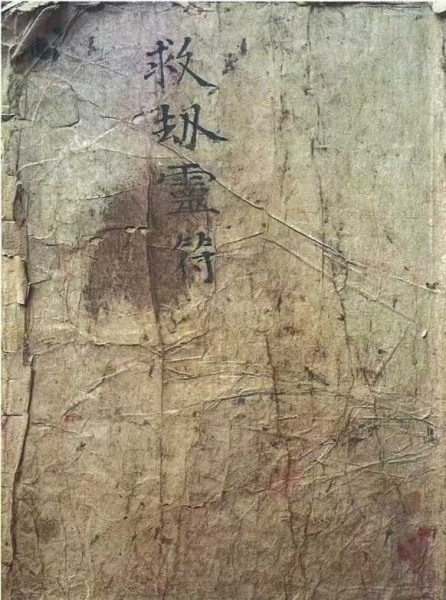 救刼靈符